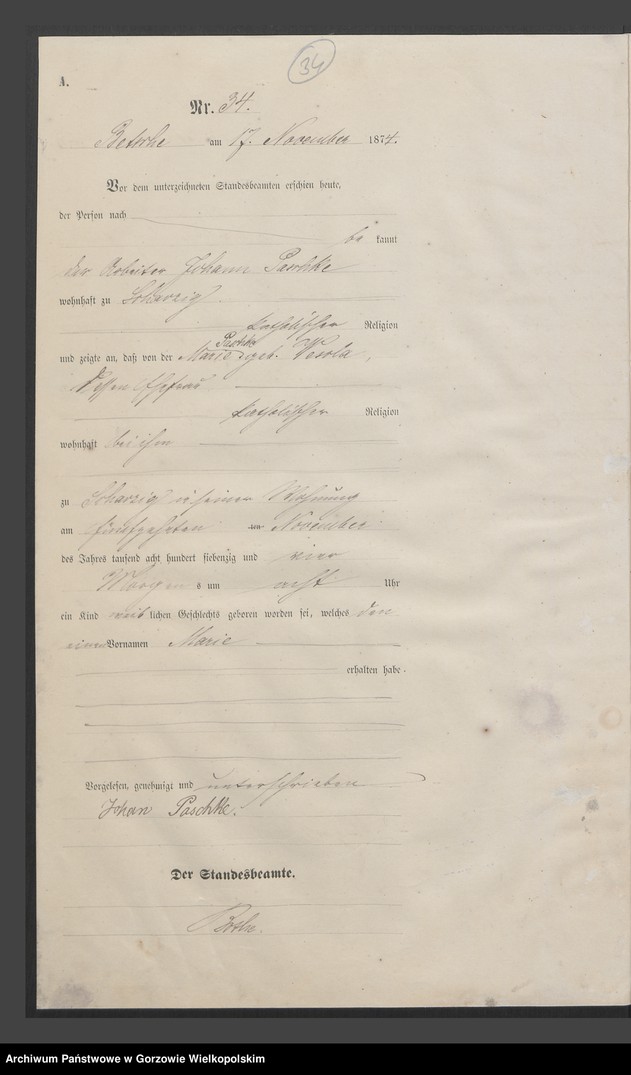 34
A.
Nr. 34.
Betsche am 17. November 1874.
Vor dem unterzeichneten Standesbeamten erschien heute,
der Person nach
be kannt
der Arbeiter Johann Paschke
wohnhaft zu Scharzig
katholischer Religion
Paschke
und zeigte an, daß von der Marie geb. Wesola,
dessen Ehefrau
katholischer Religion
wohnhaft bei ihm
zu Scharzig in seiner Wohnung
am fünfzehnten ten November
des Jahres tausend acht hundert siebenzig und vier
Morgen s um acht Uhr
ein Kind weib lichen Geschlechts geboren worden sei, welches den
einen Vornamen Marie
erhalten habe.
Vorgelesen, genehmigt und unterschrieben
Johan Paschke.
Der Standesbeamte.
Archiwum Państwowe w Gorzowie Wielkopolskim